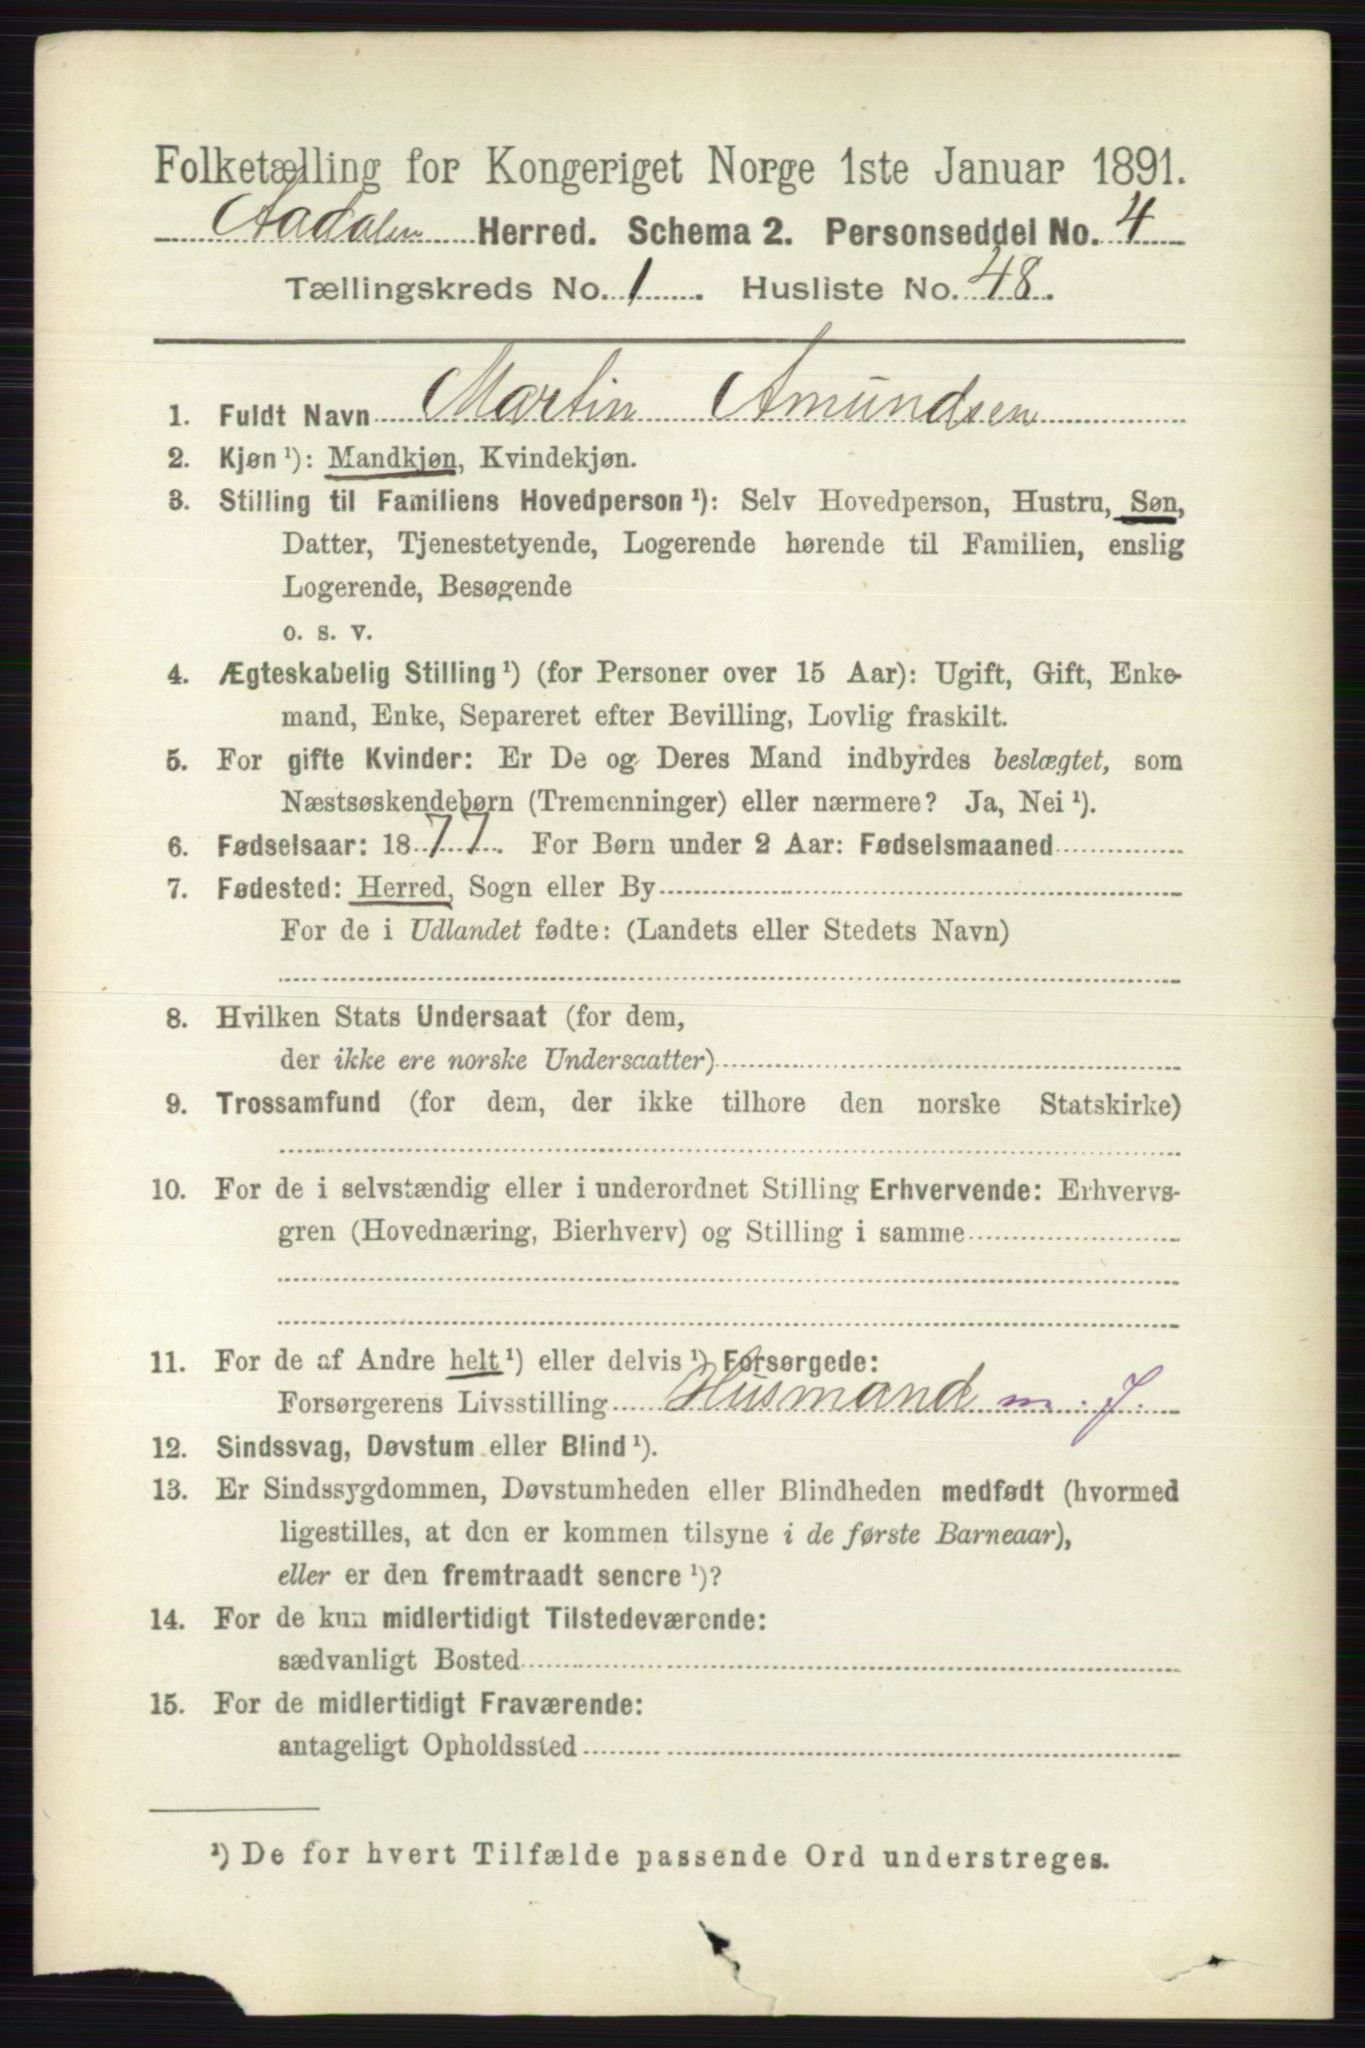 Folketælling for Kongeriget Norge 1ste Januar 1891.
Aadalen Herred. Schema 2. Personseddel No. 4
Tællingskreds No. 1. Husliste No. 48.
1. Fuldt Navn Martin Amundsen
2. Kjøn ¹): Mandkjøn, Kvindekjøn.
3. Stilling til Familiens Hovedperson ¹): Selv Hovedperson, Hustru, Søn,
Datter, Tjenestetyende, Logerende hørende til Familien, enslig
Logerende, Besøgende
o. s. v.
4. Ægteskabelig Stilling ¹) (for Personer over 15 Aar): Ugift, Gift, Enke-
mand, Enke, Separeret efter Bevilling, Lovlig fraskilt.
5. For gifte Kvinder: Er De og Deres Mand indbyrdes beslægtet, som
Næstsøskendebørn (Tremenninger) eller nærmere? Ja, Nei ¹).
6. Fødselsaar: 1877. For Børn under 2 Aar: Fødselsmaaned
7. Fødested: Herred, Sogn eller By
For de i Udlandet fødte: (Landets eller Stedets Navn)
8. Hvilken Stats Undersaat (for dem,
der ikke ere norske Undersaatter)
9. Trossamfund (for dem, der ikke tilhøre den norske Statskirke)
10. For de i selvstændig eller i underordnet Stilling Erhvervende: Erhvervs-
gren (Hovednæring, Bierhverv) og Stilling i samme
11. For de af Andre helt ¹) eller delvis ¹) Forsørgede:
Forsørgerens Livsstilling Husmand m. J.
12. Sindssvag, Døvstum eller Blind ¹).
13. Er Sindssygdommen, Døvstumheden eller Blindheden medfødt (hvormed
ligestilles, at den er kommen tilsyne i de første Barneaar),
eller er den fremtraadt senere ¹)?
14. For de kun midlertidigt Tilstedeværende:
sædvanligt Bosted
15. For de midlertidigt Fraværende:
antageligt Opholdssted
¹) De for hvert Tilfælde passende Ord understreges.